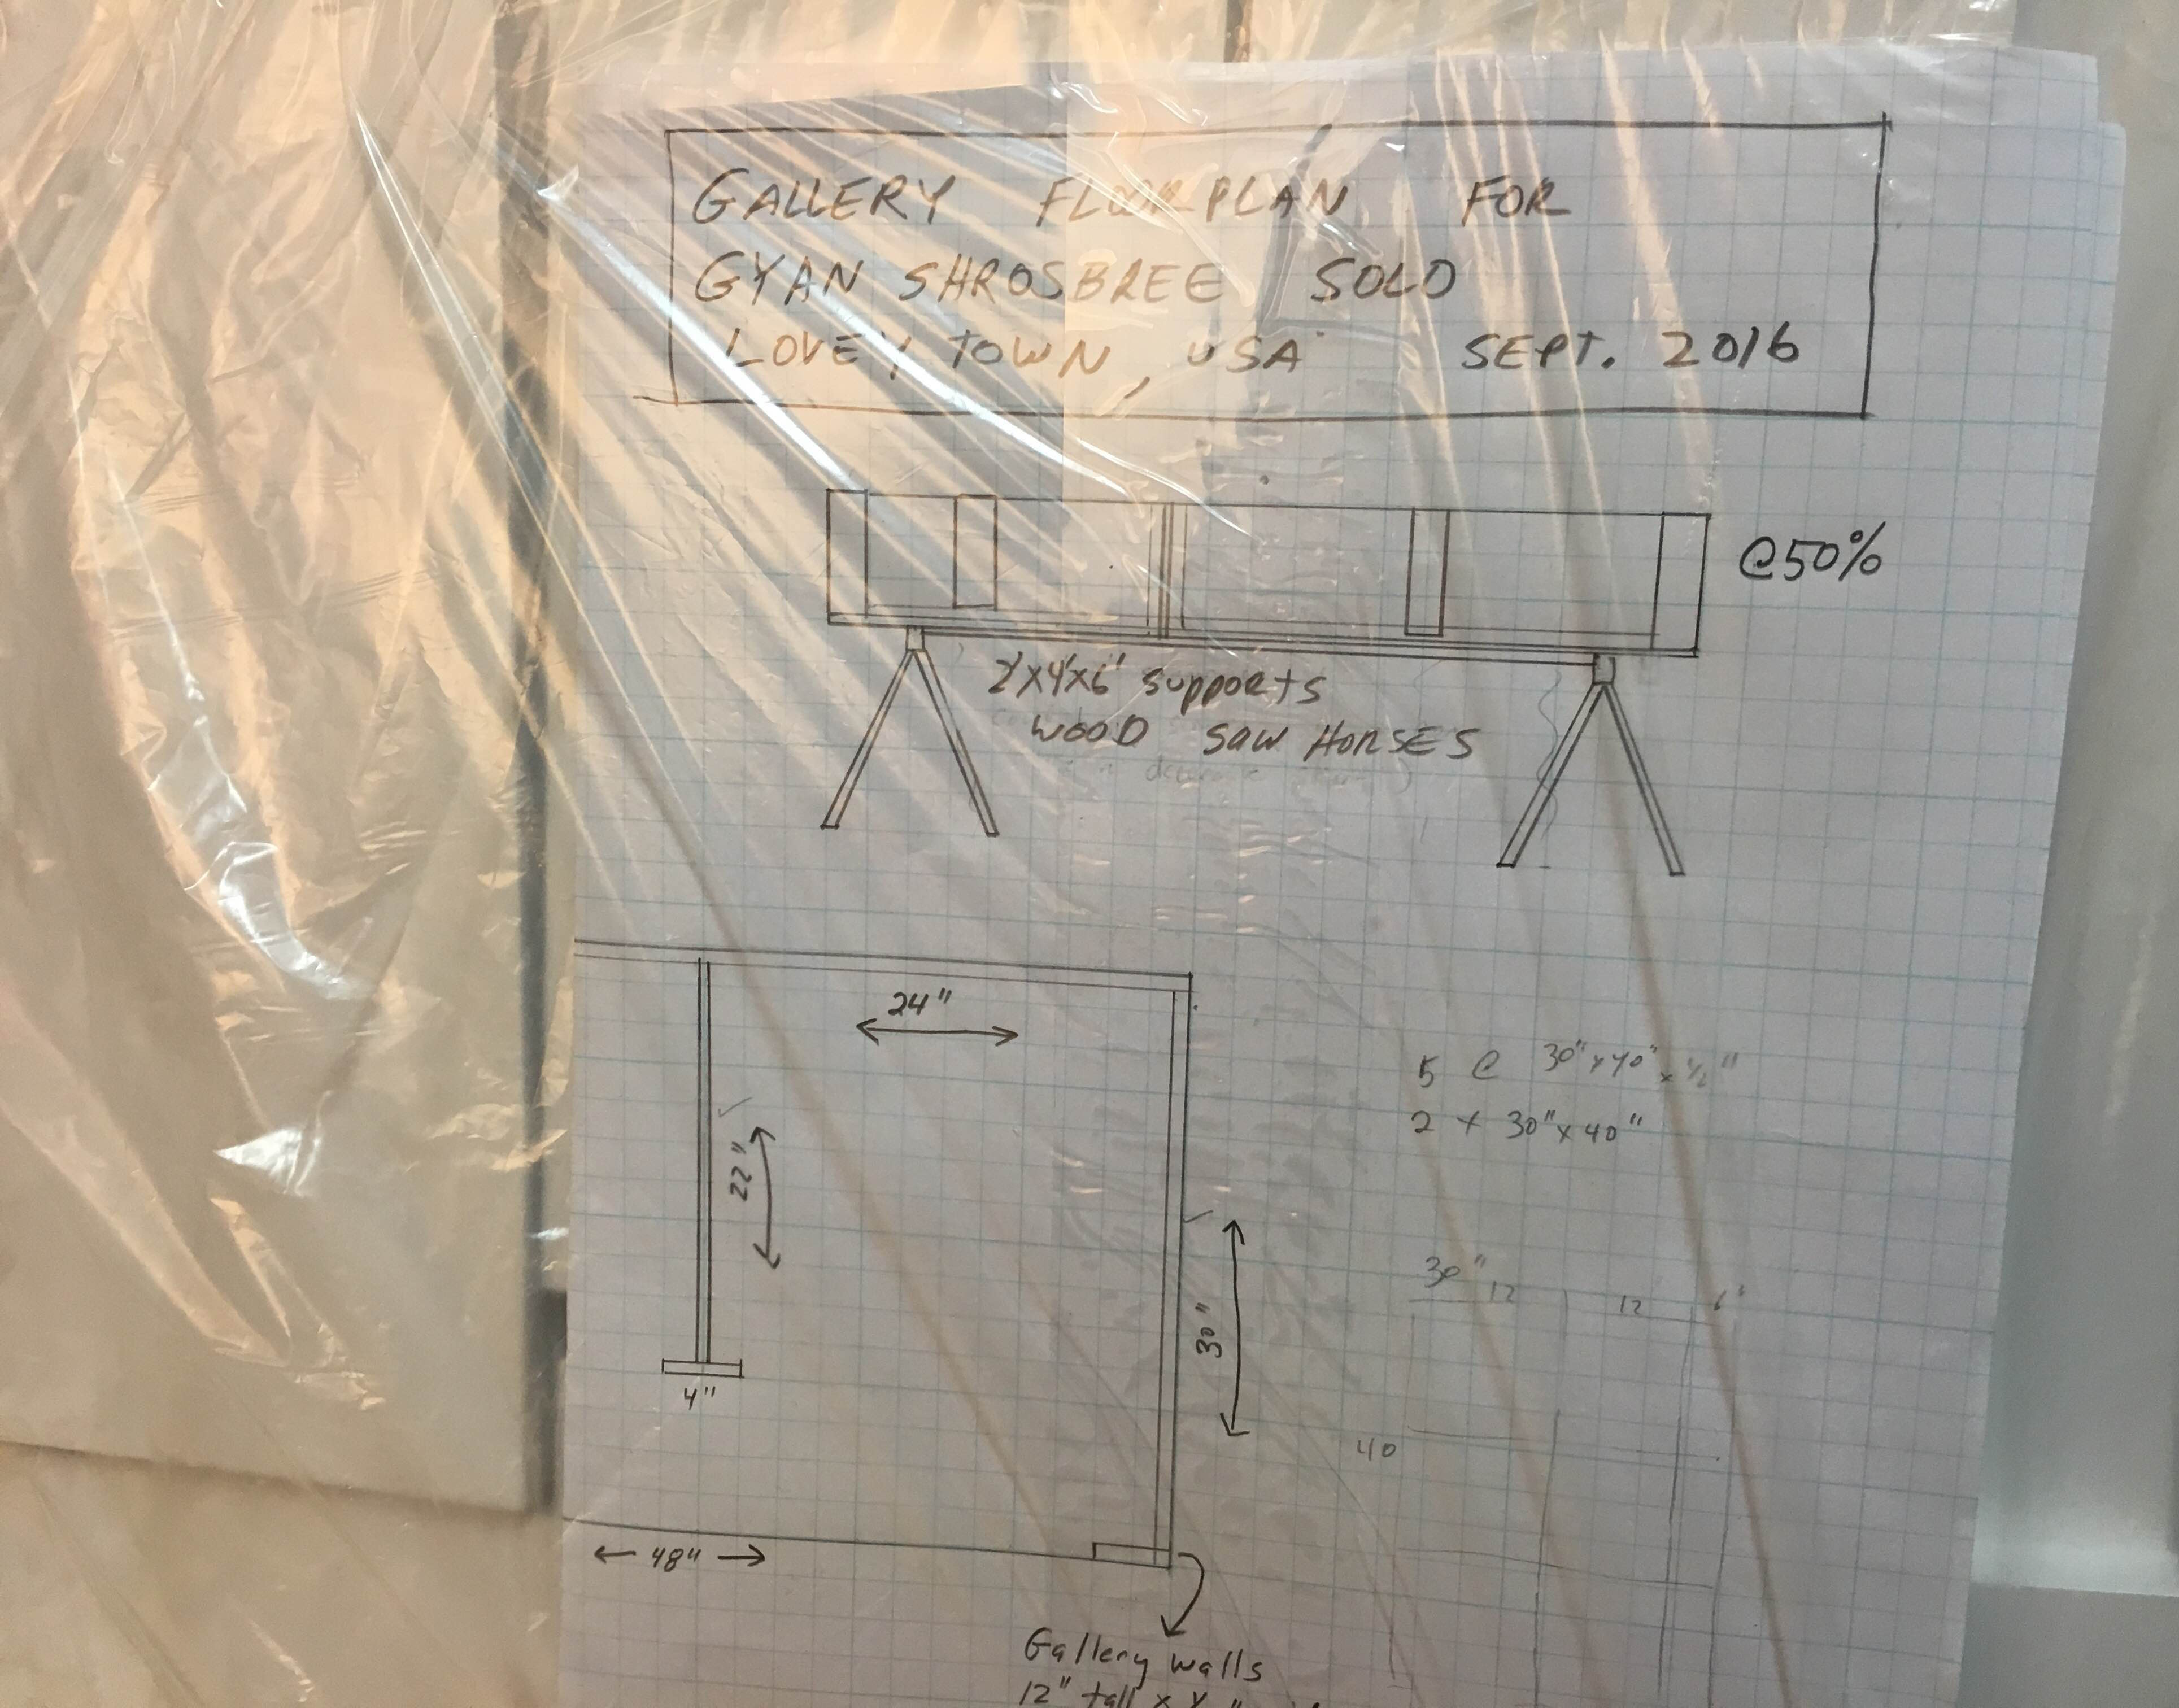 GALLERY FLOORPLAN FOR
GYAN SHROSBREE SOLO
LOVEY TOWN, USA SEPT. 2016
@50%
2"x4"x6' supports
WOOD SAW HORSES
24"
22"
4"
30"
48"
5 @ 30"x40" x 1/2"
2 x 30"x40"
30"
12 12 6"
40
Gallery walls
12" tall x